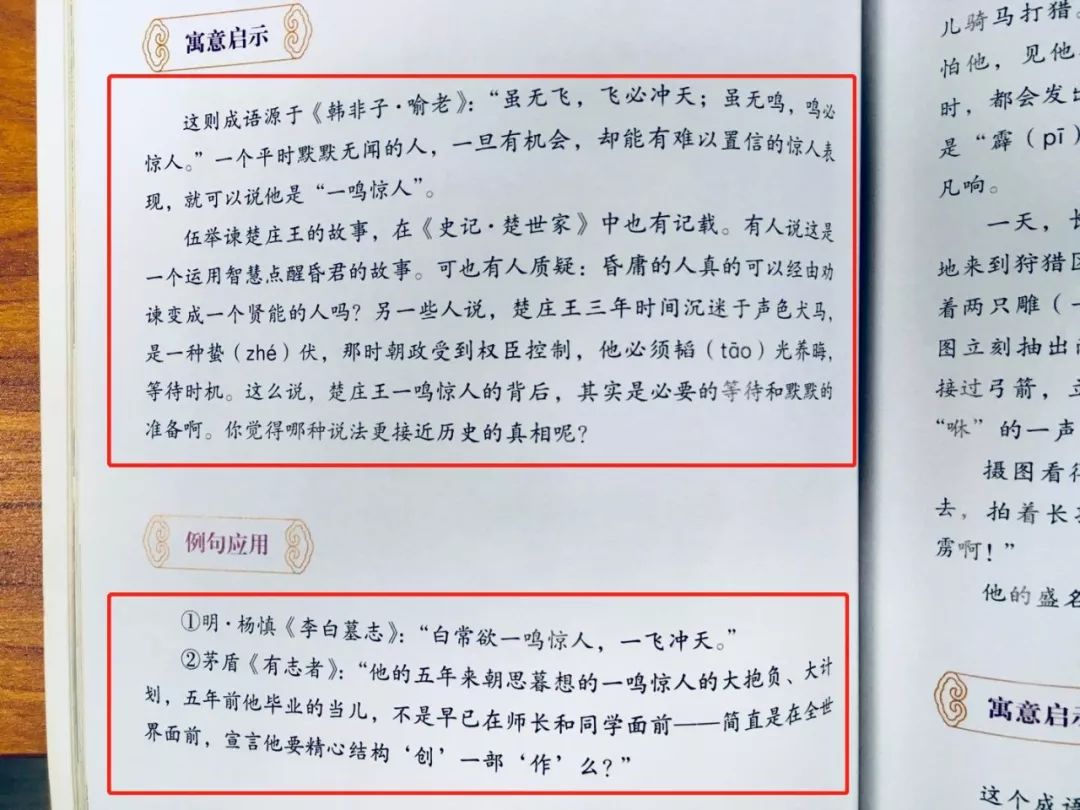 寓意启示
这则成语源于《韩非子·喻老》：“虽无飞，飞必冲天；虽无鸣，鸣必
惊人。”一个平时默默无闻的人，一旦有机会，却能有难以置信的惊人表
现，就可以说他是“一鸣惊人”。
伍举谏楚庄王的故事，在《史记·楚世家》中也有记载。有人说这是
一个运用智慧点醒昏君的故事。可也有人质疑：昏庸的人真的可以经由劝
谏变成一个贤能的人吗？另一些人说，楚庄王三年时间沉迷于声色犬马，
是一种蛰（zhé）伏，那时朝政受到权臣控制，他必须韬（tāo）光养晦，
等待时机。这么说，楚庄王一鸣惊人的背后，其实是必要的等待和默默的
准备啊。你觉得哪种说法更接近历史的真相呢？
例句应用
①明·杨慎《李白墓志》：“白常欲一鸣惊人，一飞冲天。”
②茅盾《有志者》：“他的五年来朝思暮想的一鸣惊人的大抱负、大计
划，五年前他毕业的当儿，不是早已在师长和同学面前——简直是在全世
界面前，宣言他要精心结构‘创’一部‘作’么？”
儿骑马打猎。
怕他，见他
时，都会发出
是“霹（pī）
凡响。
一天，长
地来到狩猎区
着两只雕（
图立刻抽出
接过弓箭，立
“咻”的一声
摄图看得
去，拍着长
雳啊！”
他的盛名
寓意启示
这个成语